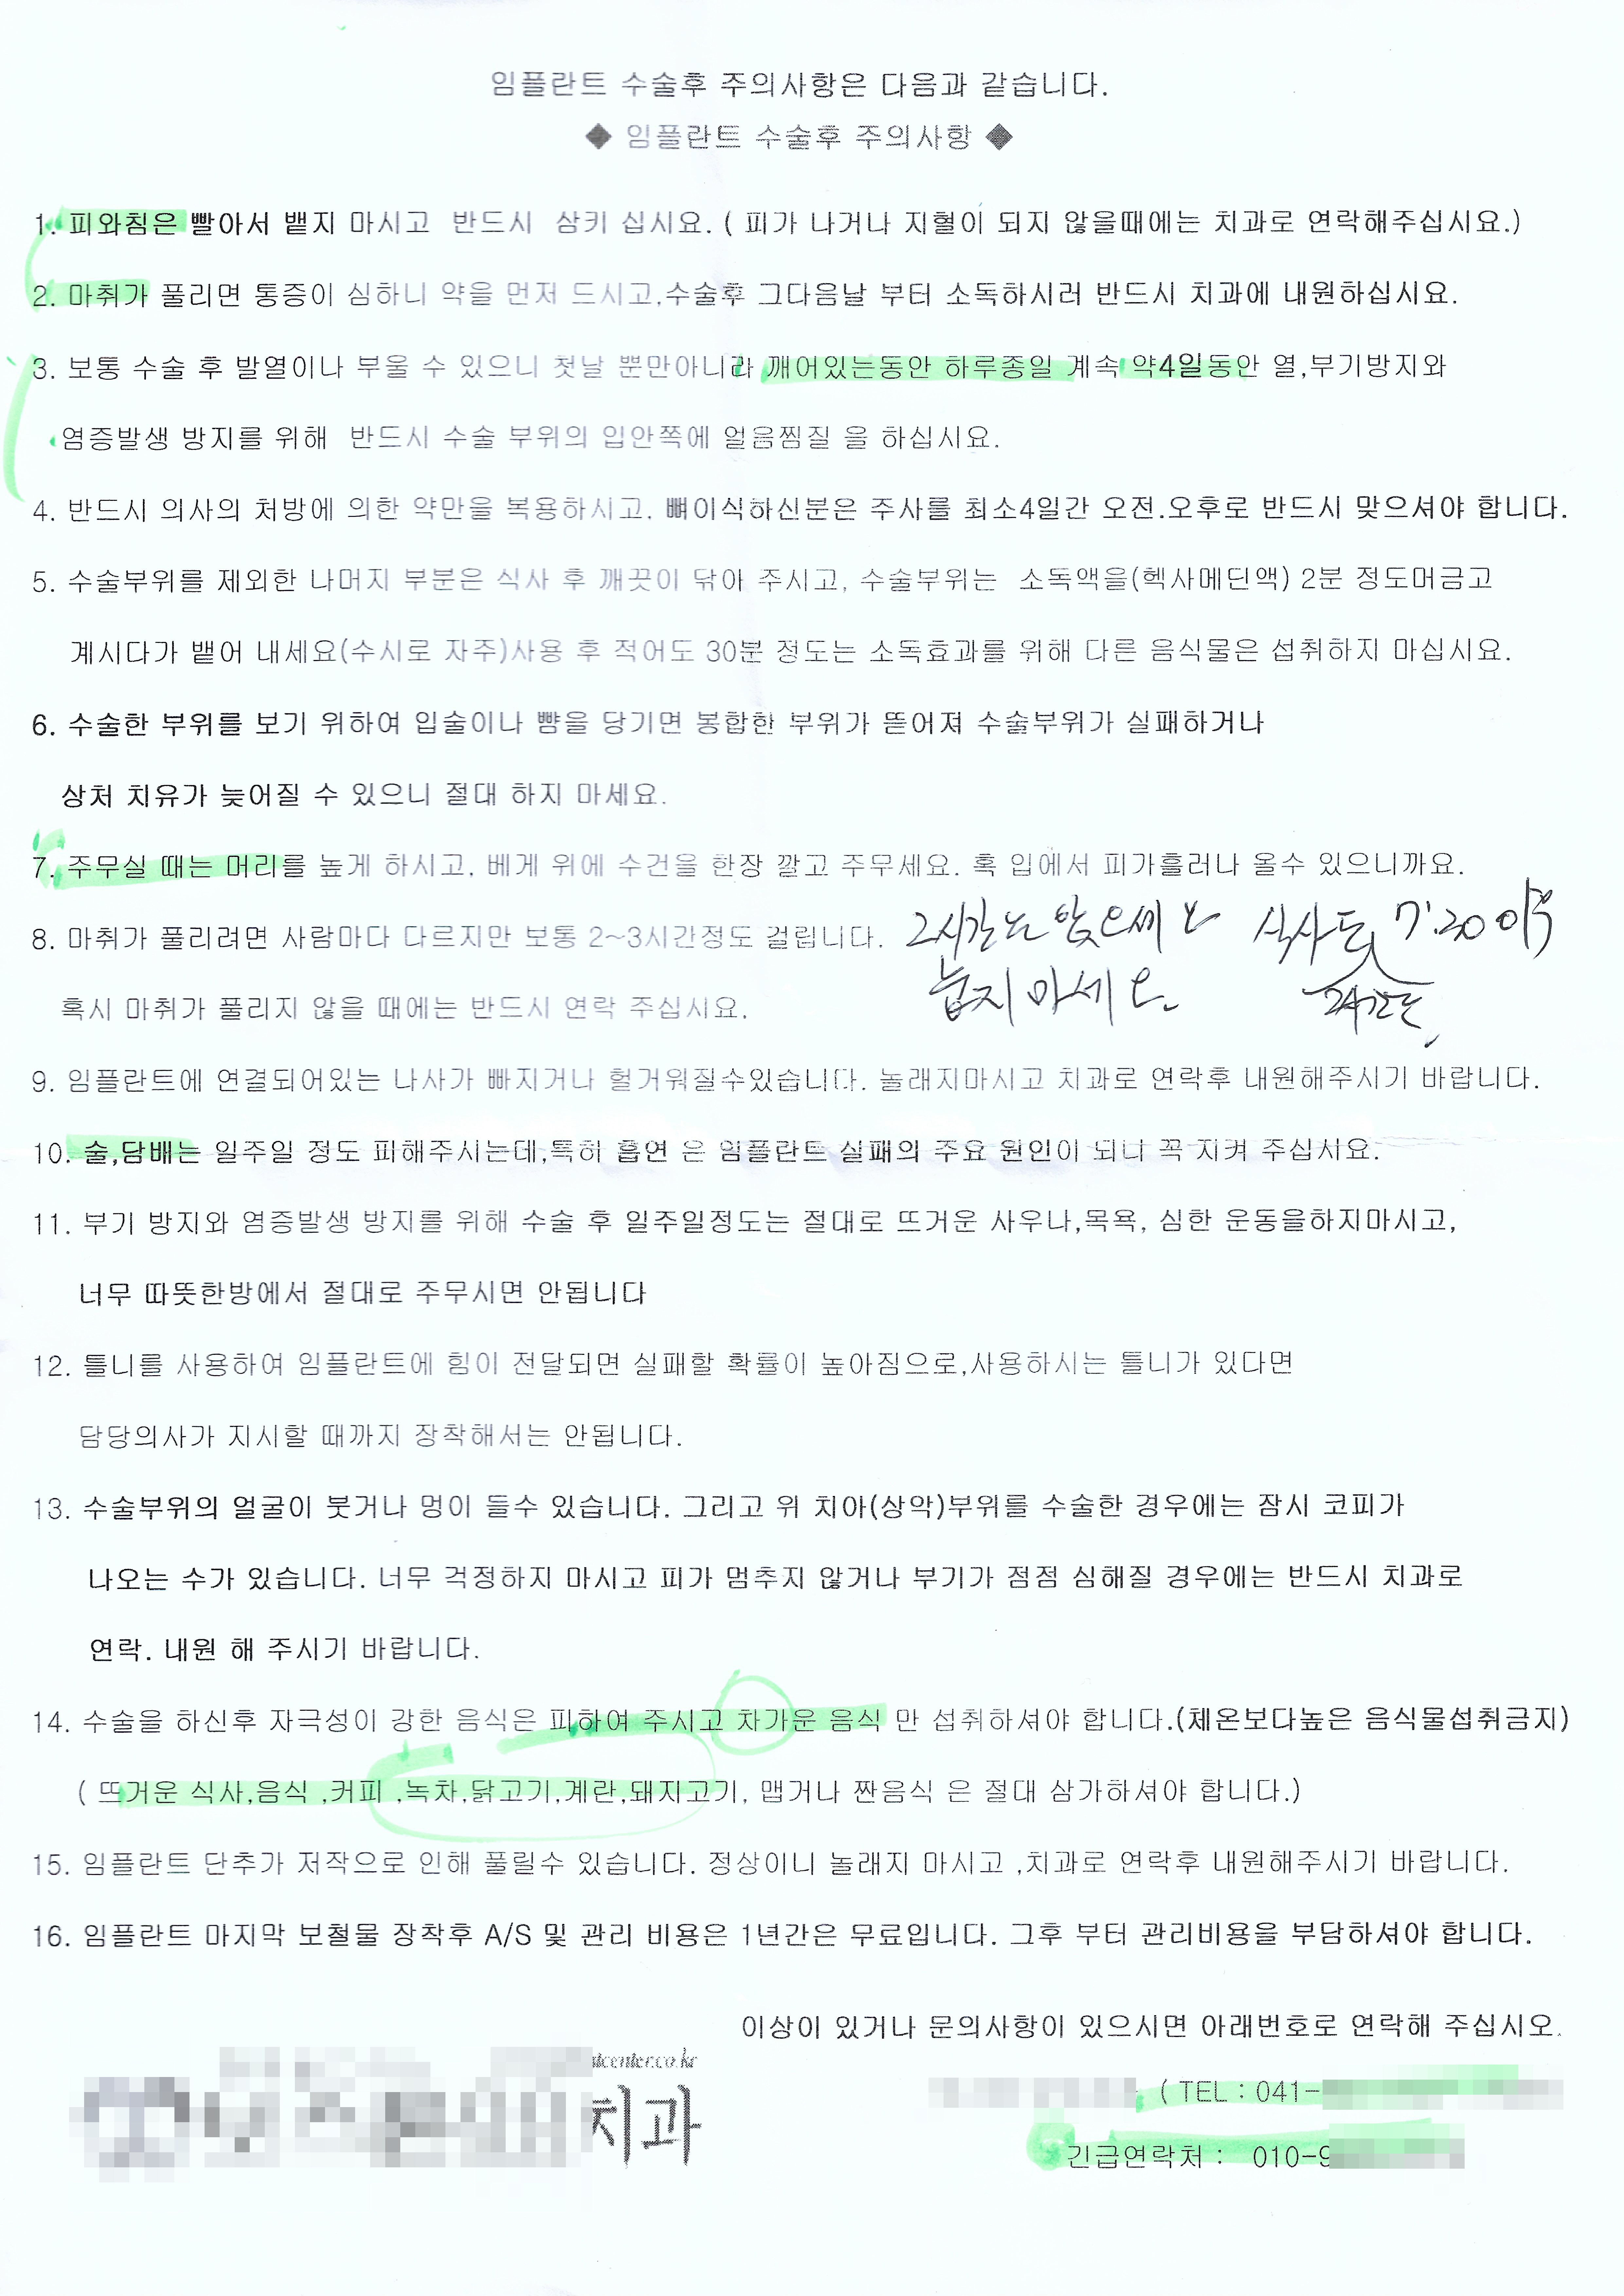 임플란트 수술후 주의사항은 다음과 같습니다.
◆ 임플란트 수술후 주의사항 ◆
1. 피와침은 빨아서 뱉지 마시고 반드시 삼키 십시요. ( 피가 나거나 지혈이 되지 않을때에는 치과로 연락해주십시요.)
2. 마취가 풀리면 통증이 심하니 약을 먼저 드시고,수술후 그다음날 부터 소독하시러 반드시 치과에 내원하십시요.
3. 보통 수술 후 발열이나 부울 수 있으니 첫날 뿐만아니라 깨어있는동안 하루종일 계속 약4일동안 열,부기방지와
염증발생 방지를 위해 반드시 수술 부위의 입안쪽에 얼음찜질 을 하십시요.
4. 반드시 의사의 처방에 의한 약만을 복용하시고. 뼈이식하신분은 주사를 최소4일간 오전.오후로 반드시 맞으셔야 합니다.
5. 수술부위를 제외한 나머지 부분은 식사 후 깨끗이 닦아 주시고, 수술부위는 소독액을(헥사메딘액) 2분 정도머금고
계시다가 뱉어 내세요(수시로 자주)사용 후 적어도 30분 정도는 소독효과를 위해 다른 음식물은 섭취하지 마십시요.
6. 수술한 부위를 보기 위하여 입술이나 뺨을 당기면 봉합한 부위가 뜯어져 수술부위가 실패하거나
상처 치유가 늦어질 수 있으니 절대 하지 마세요.
7. 주무실 때는 머리를 높게 하시고, 베게 위에 수건을 한장 깔고 주무세요. 혹 입에서 피가흘러나 올수 있으니까요.
8. 마취가 풀리려면 사람마다 다르지만 보통 2~3시간정도 걸립니다. 2시간은 앉으세요 식사도 7:20 이후
혹시 마취가 풀리지 않을 때에는 반드시 연락 주십시요. 눕지마세요.
9. 임플란트에 연결되어있는 나사가 빠지거나 헐거워질수있습니다. 놀래지마시고 치과로 연락후 내원해주시기 바랍니다.
10. 술,담배는 일주일 정도 피해주시는데,특히 흡연 은 임플란트 실패의 주요 원인이 되니 꼭 지켜 주십시요.
11. 부기 방지와 염증발생 방지를 위해 수술 후 일주일정도는 절대로 뜨거운 사우나,목욕, 심한 운동을하지마시고,
너무 따뜻한방에서 절대로 주무시면 안됩니다
12. 틀니를 사용하여 임플란트에 힘이 전달되면 실패할 확률이 높아짐으로,사용하시는 틀니가 있다면
담당의사가 지시할 때까지 장착해서는 안됩니다.
13. 수술부위의 얼굴이 붓거나 멍이 들수 있습니다. 그리고 위 치아(상악)부위를 수술한 경우에는 잠시 코피가
나오는 수가 있습니다. 너무 걱정하지 마시고 피가 멈추지 않거나 부기가 점점 심해질 경우에는 반드시 치과로
연락. 내원 해 주시기 바랍니다.
14. 수술을 하신후 자극성이 강한 음식은 피하여 주시고 차가운 음식 만 섭취하셔야 합니다.(체온보다높은 음식물섭취금지)
( 뜨거운 식사,음식 ,커피 ,녹차,닭고기,계란,돼지고기, 맵거나 짠음식 은 절대 삼가하셔야 합니다.)
15. 임플란트 단추가 저작으로 인해 풀릴수 있습니다. 정상이니 놀래지 마시고 ,치과로 연락후 내원해주시기 바랍니다.
16. 임플란트 마지막 보철물 장착후 A/S 및 관리 비용은 1년간은 무료입니다. 그후 부터 관리비용을 부담하셔야 합니다.
이상이 있거나 문의사항이 있으시면 아래번호로 연락해 주십시오.
ntcenter.co.kr
치과
( TEL : 041-
긴급연락처 : 010-9